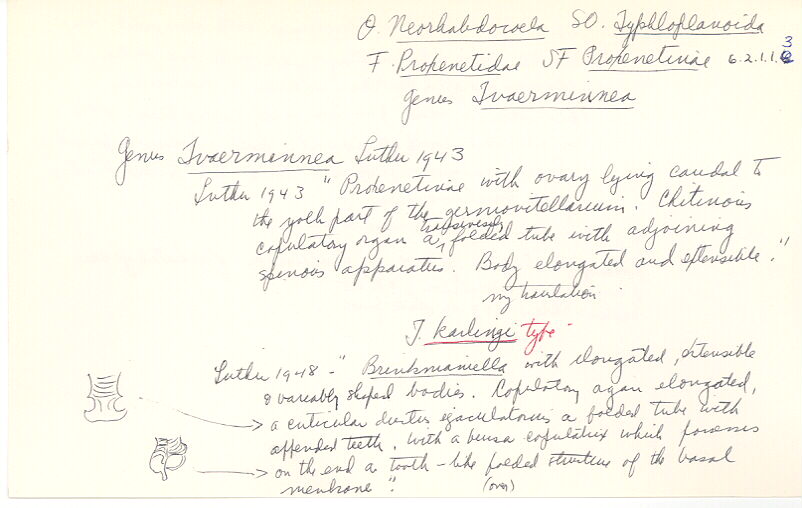 O. Neorhabdocoela SO. Typhloplanoida
F. Proxenetidae SF Proxenetinae 6.2.1.1.3
Genus Tvaerminnea
Genus Tvaerminnea Luther 1943
Luther 1943 " Proxenetinae with ovary lying caudal to
the yolk part of the germovitellarium. Chitinous
copulatory organ a transversely folded tube with adjoining
spinous apparatus. Body elongated and extensible."
my translation
T. karlingi type
Luther 1948 - " Brinkmaniella with elongated, extensible
& variably shaped bodies. Copulatory organ elongated,
a cuticular ductus ejaculatorius a folded tube with
appended teeth. with a bursa copulatrix which possesses
on the end a tooth-like folded structure of the basal
membrane".
(over)